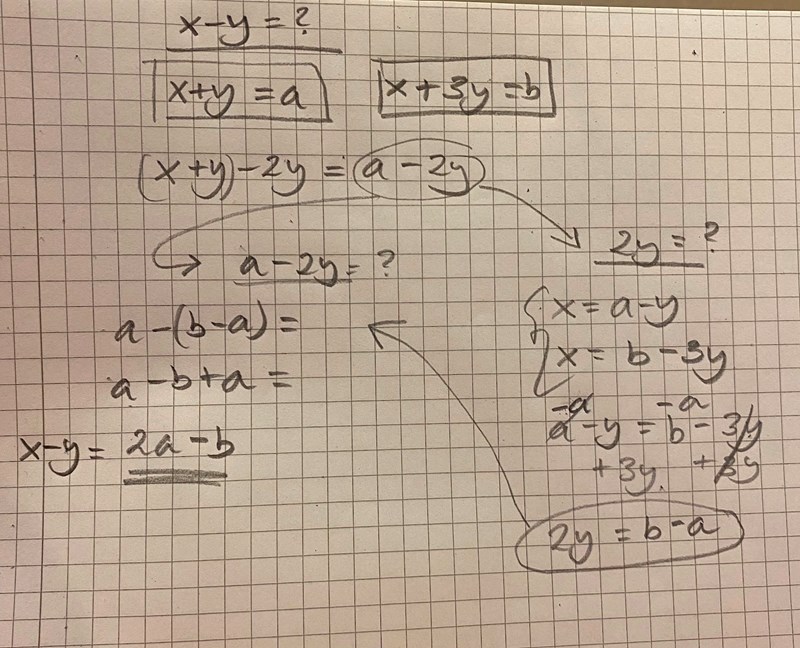 x-y = ?
x+y = a
x + 3y = b
(x+y) - 2y = a - 2y
a - 2y = ?
a - (b-a) =
a - b + a =
x-y = 2a - b
2y = ?
x = a - y
x = b - 3y
-a -a
a - y = b - 3y
+3y +3y
2y = b - a